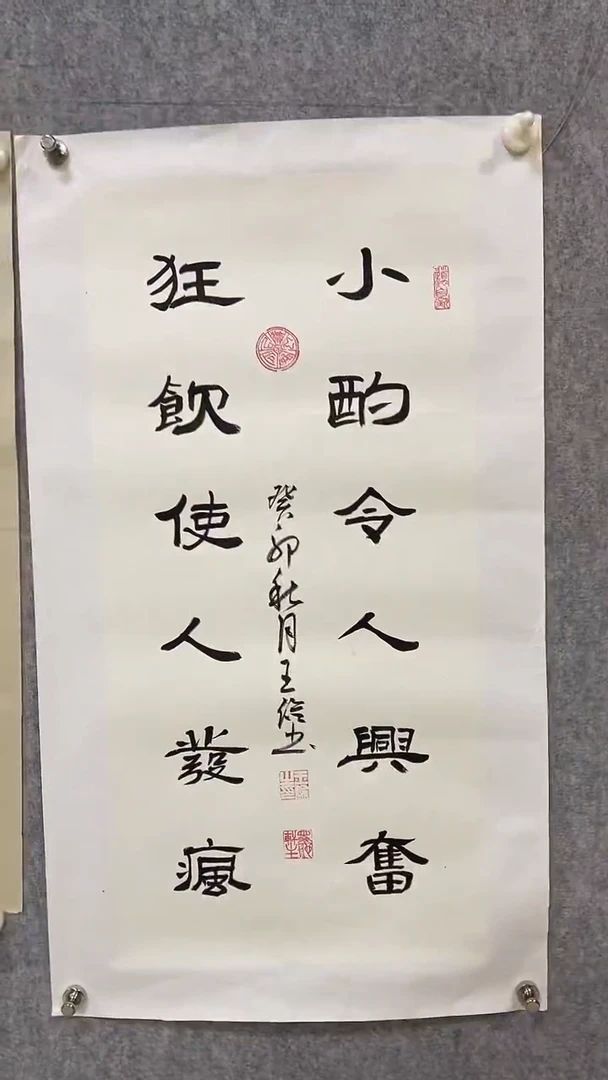 小酌令人興奮
狂飲使人發瘋
癸卯秋月王